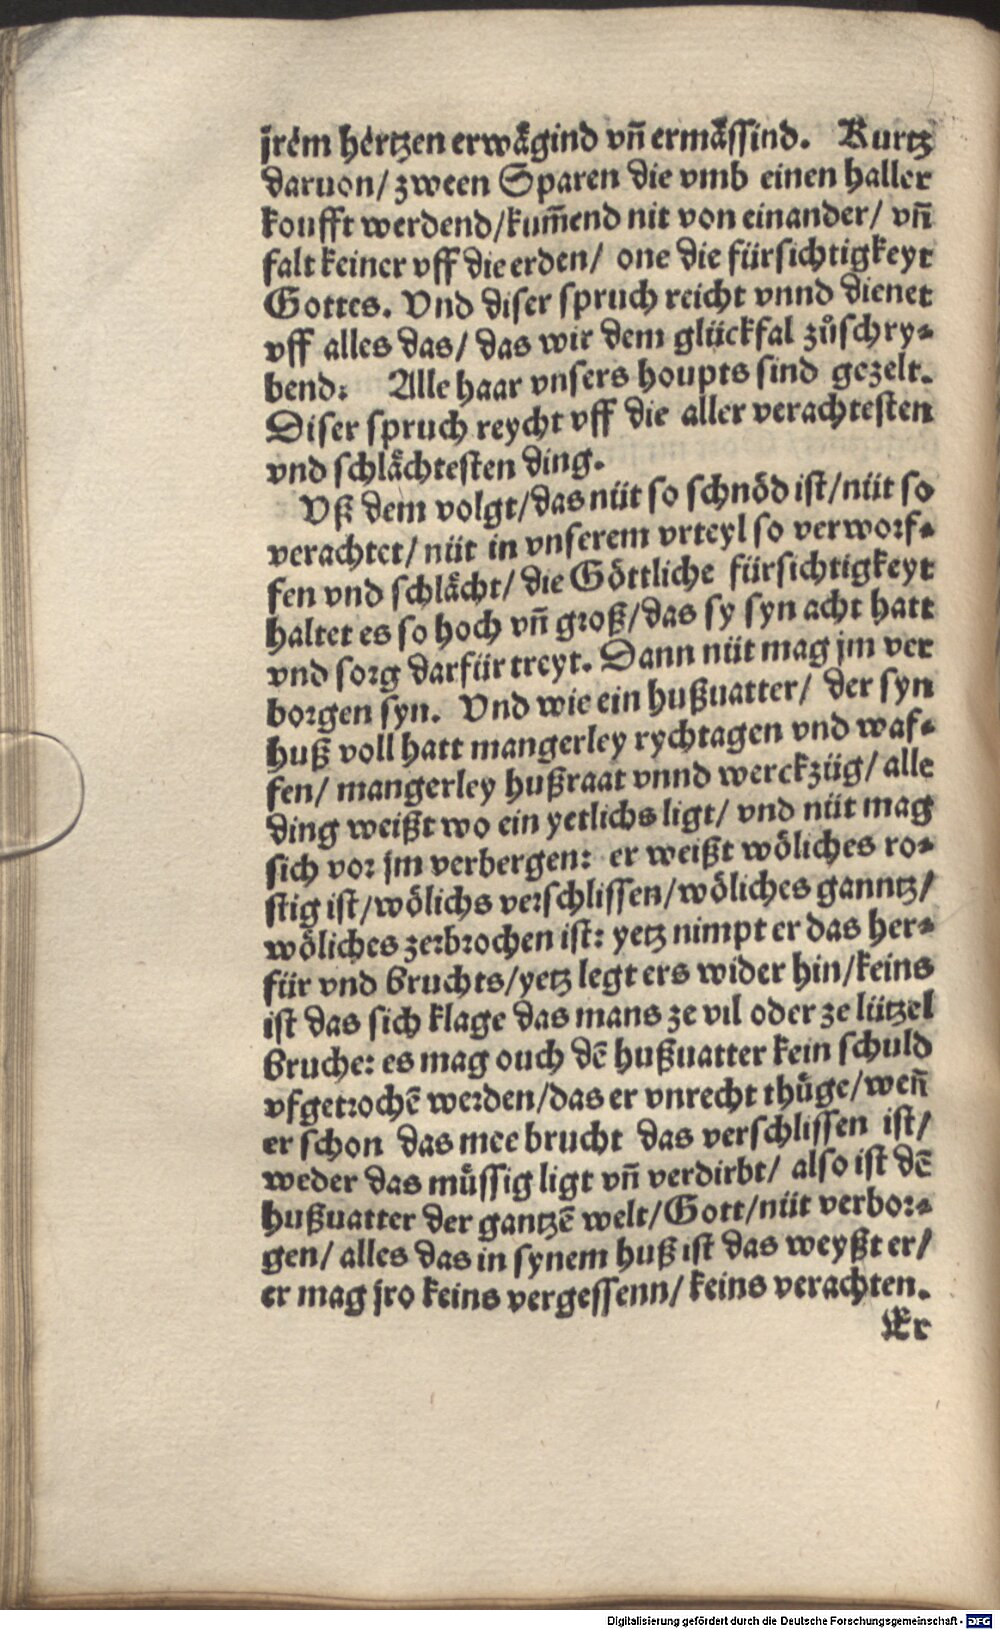 jrem hertzen erwågind vñ ermåssind. Kurtz
daruon/ zween Sparen die vmb einen haller
koufft werdend/kum̄end nit von einander/ vñ
falt keiner vff die erden/ one die fürsichtigkeyt
Gottes. Vnd diser spruch reicht vnnd dienet
vff alles das/ das wir dem glückfal zůschry⸗
bend: Alle haar vnsers houpts sind gezelt.
Diser spruch reycht vff die aller verachtesten
vnd schlåchtesten ding.
Vß dem volgt/das nüt so schnöd ist/nüt so
verachtet/ nüt in vnserem vrteyl so verworf⸗
fen vnd schlåcht/ die Göttliche fürsichtigkeyt
haltet es so hoch vñ groß/das sy syn acht hatt
vnd sorg darfür treyt. Dann nüt mag jm ver
borgen syn. Vnd wie ein hußuatter/ der syn
huß voll hatt mangerley rychtagen vnd waf⸗
fen/ mangerley hußraat vnnd werckzüg/ alle
ding weißt wo ein yetlichs ligt/ vnd nüt mag
sich vor jm verbergen: er weißt wöliches ro⸗
stig ist/wölichs verschlissen/wöliches ganntz/
wöliches zerbrochen ist: yetz nimpt er das her⸗
für vnd bruchts/yetz legt ers wider hin/keins
ist das sich klage das mans ze vil oder ze lützel
bruche: es mag ouch dē hußuatter kein schuld
vfgetrochē werden/das er vnrecht thüge/weñ
er schon das mee brucht das verschlissen ist/
weder das müssig ligt vñ verdirbt/ also ist dē
hußuatter der gantzē welt/Gott/nüt verbor⸗
gen/ alles das in synem huß ist das weyßt er/
er mag jro keins vergessenn/ keins verachten.
Er
Digitalisierung gefördert durch die Deutsche Forschungsgemeinschaft - DFG